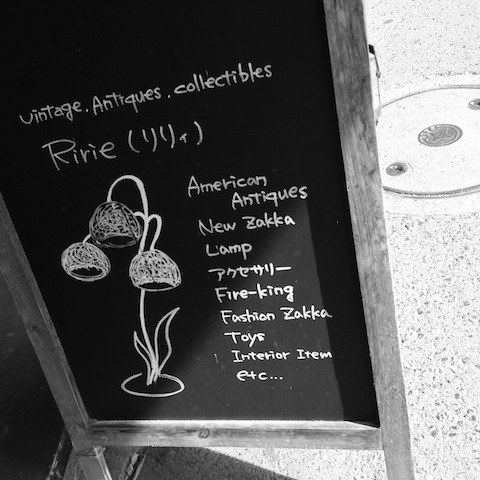 vintage. Antiques. collectibles
Ririe (リリィ)
American
Antiques
New Zakka
Lamp
アクセサリー
Fire-king
Fashion Zakka
Toys
Interior Item
etc...